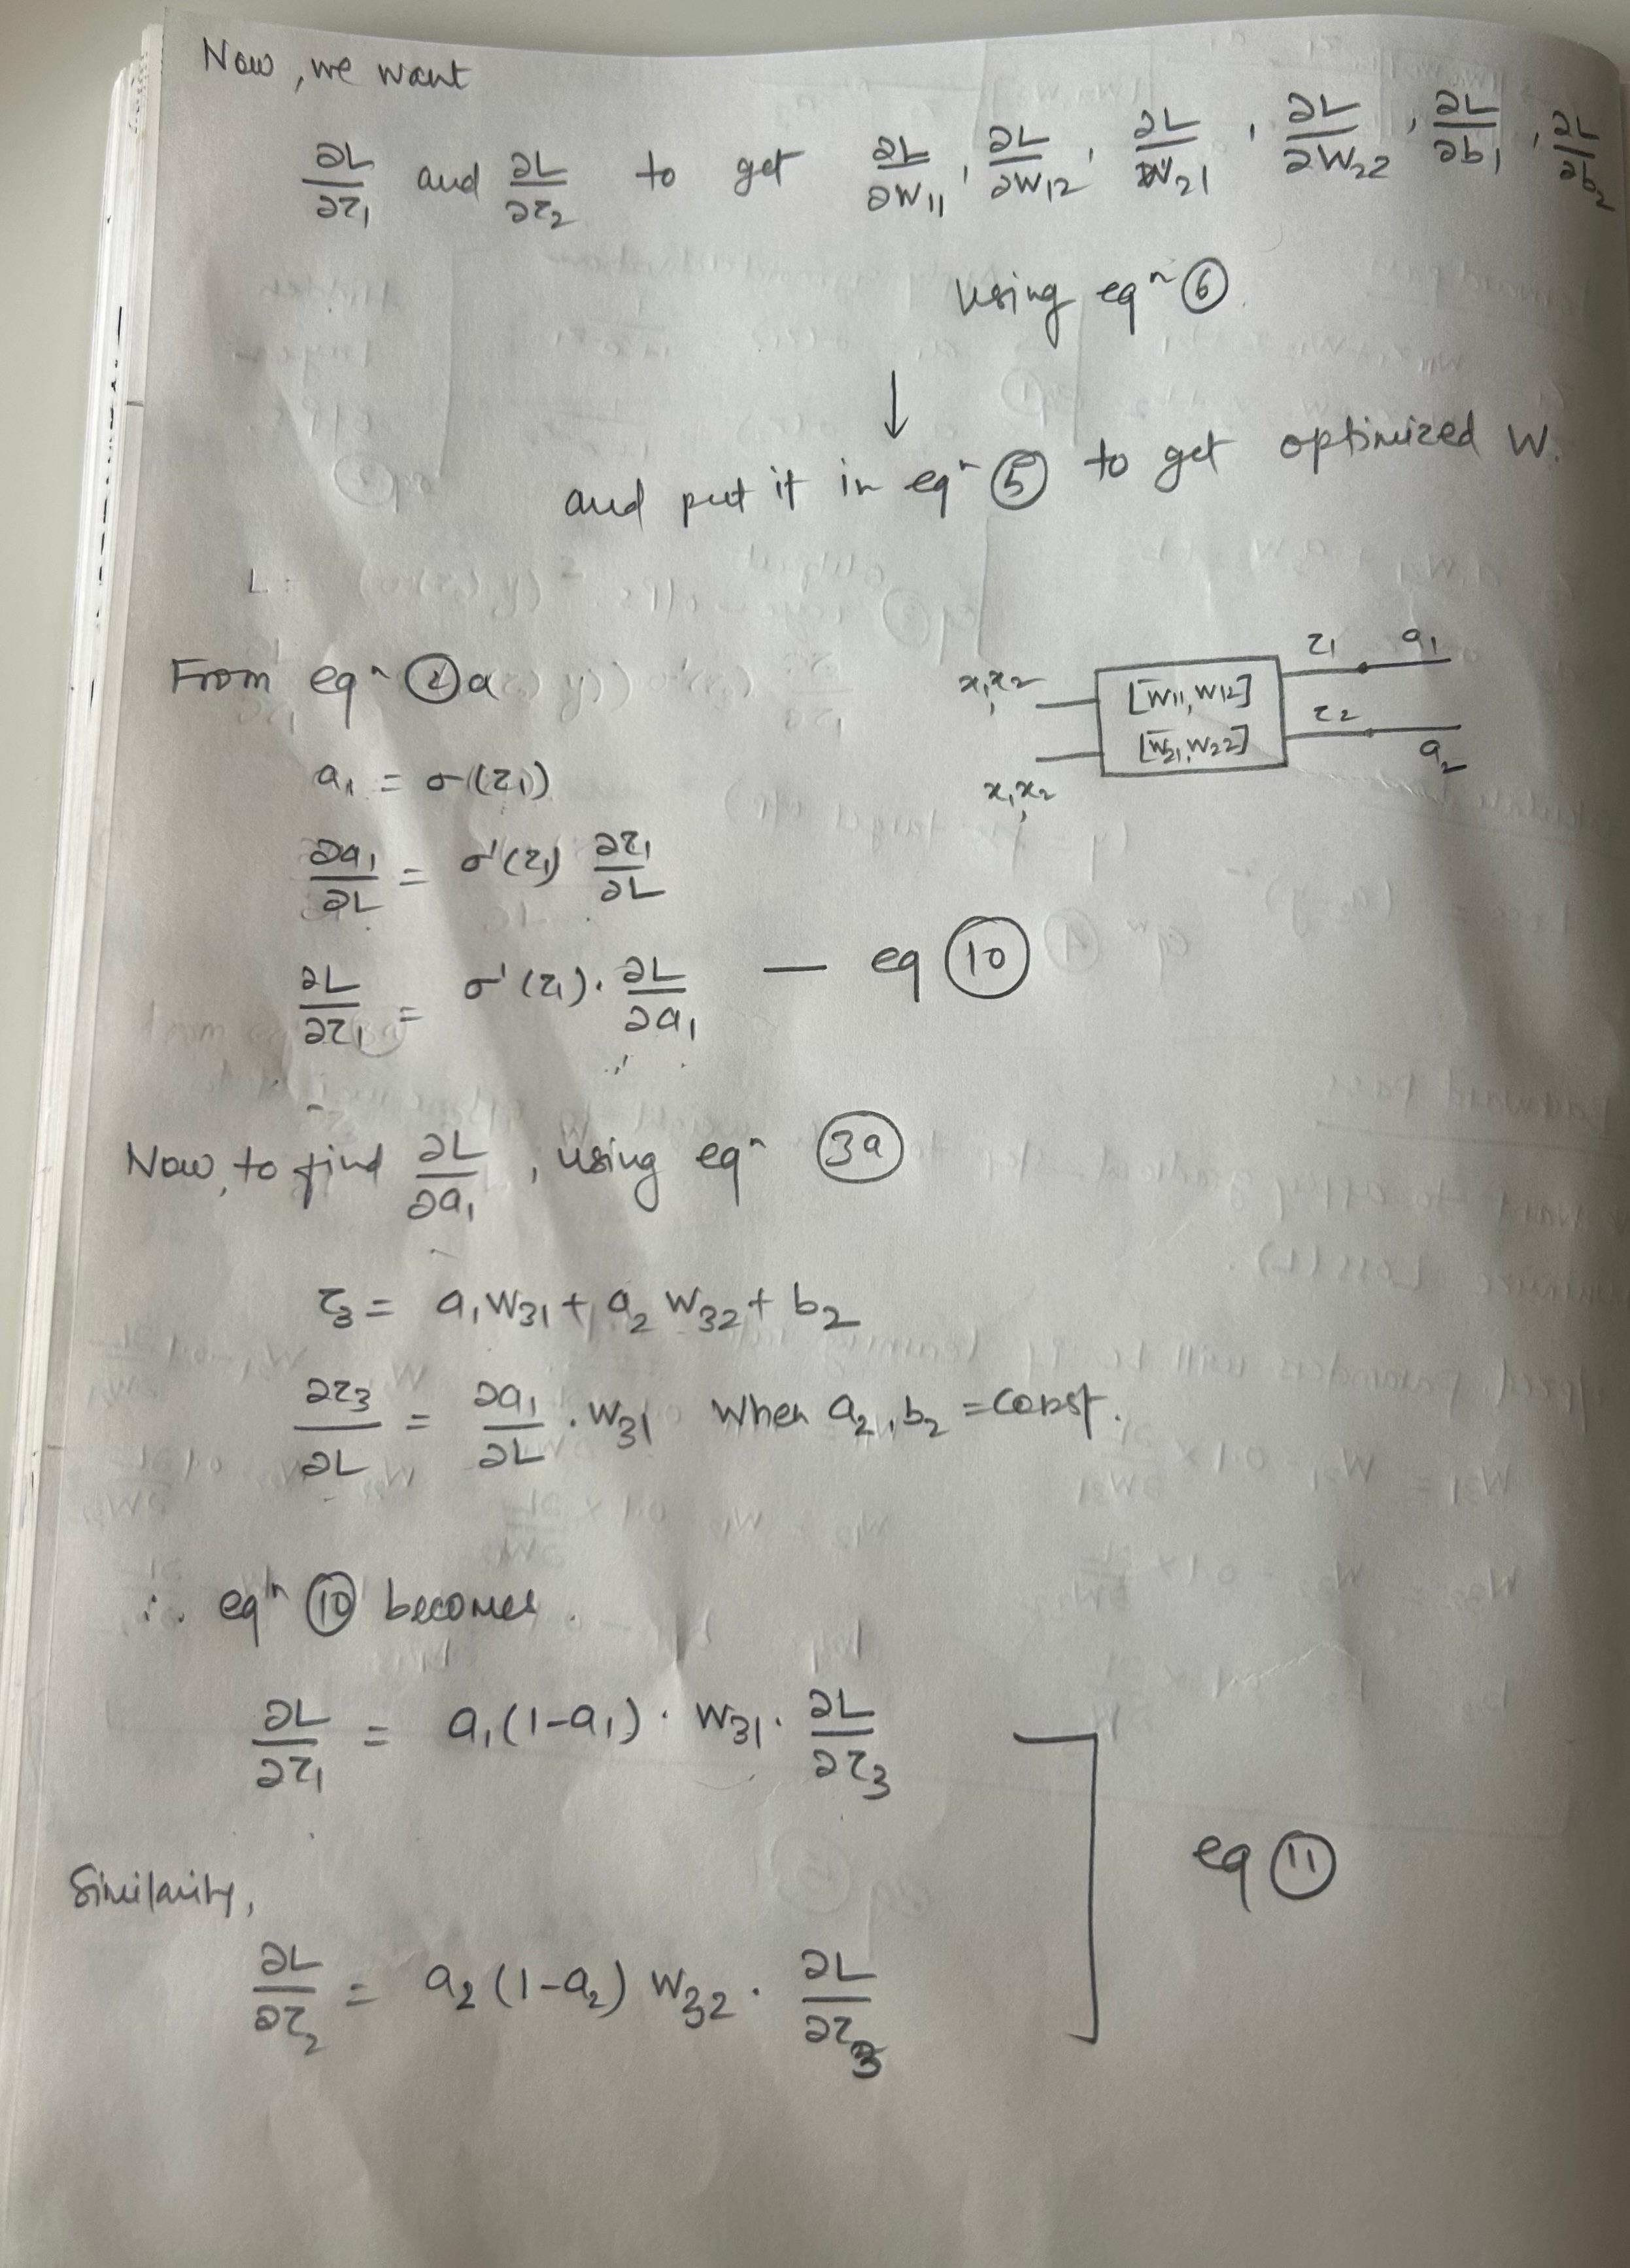 Now, we want
∂L/∂z₁ and ∂L/∂z₂ to get ∂L/∂W₁₁, ∂L/∂W₁₂, ∂L/∂W₂₁, ∂L/∂W₂₂, ∂L/∂b₁, ∂L/∂b₂
using eqⁿ ⑥.
↓
and put it in eqⁿ ⑤ to get optimized W.
L:
From eqⁿ ②a
a₁ = σ(z₁)
∂a₁/∂L = σ'(z₁) ∂z₁/∂L
∂L/∂z₁ = σ'(z₁) · ∂L/∂a₁ — eq ⑩
x₁, x₂
x₁, x₂
[W₁₁, W₁₂]
[W₂₁, W₂₂]
z₁ a₁
z₂ a₂
Now, to find ∂L/∂a₁, using eqⁿ (3a)
z₃ = a₁W₃₁ + a₂ W₃₂ + b₂
∂z₃/∂L = ∂a₁/∂L · W₃₁ when a₂, b₂ = const.
∴ eqⁿ ⑩ becomes.
∂L/∂z₁ = a₁(1-a₁) · W₃₁ · ∂L/∂z₃
Similarity,
∂L/∂z₂ = a₂ (1-a₂) W₃₂ · ∂L/∂z₃
eq ⑪